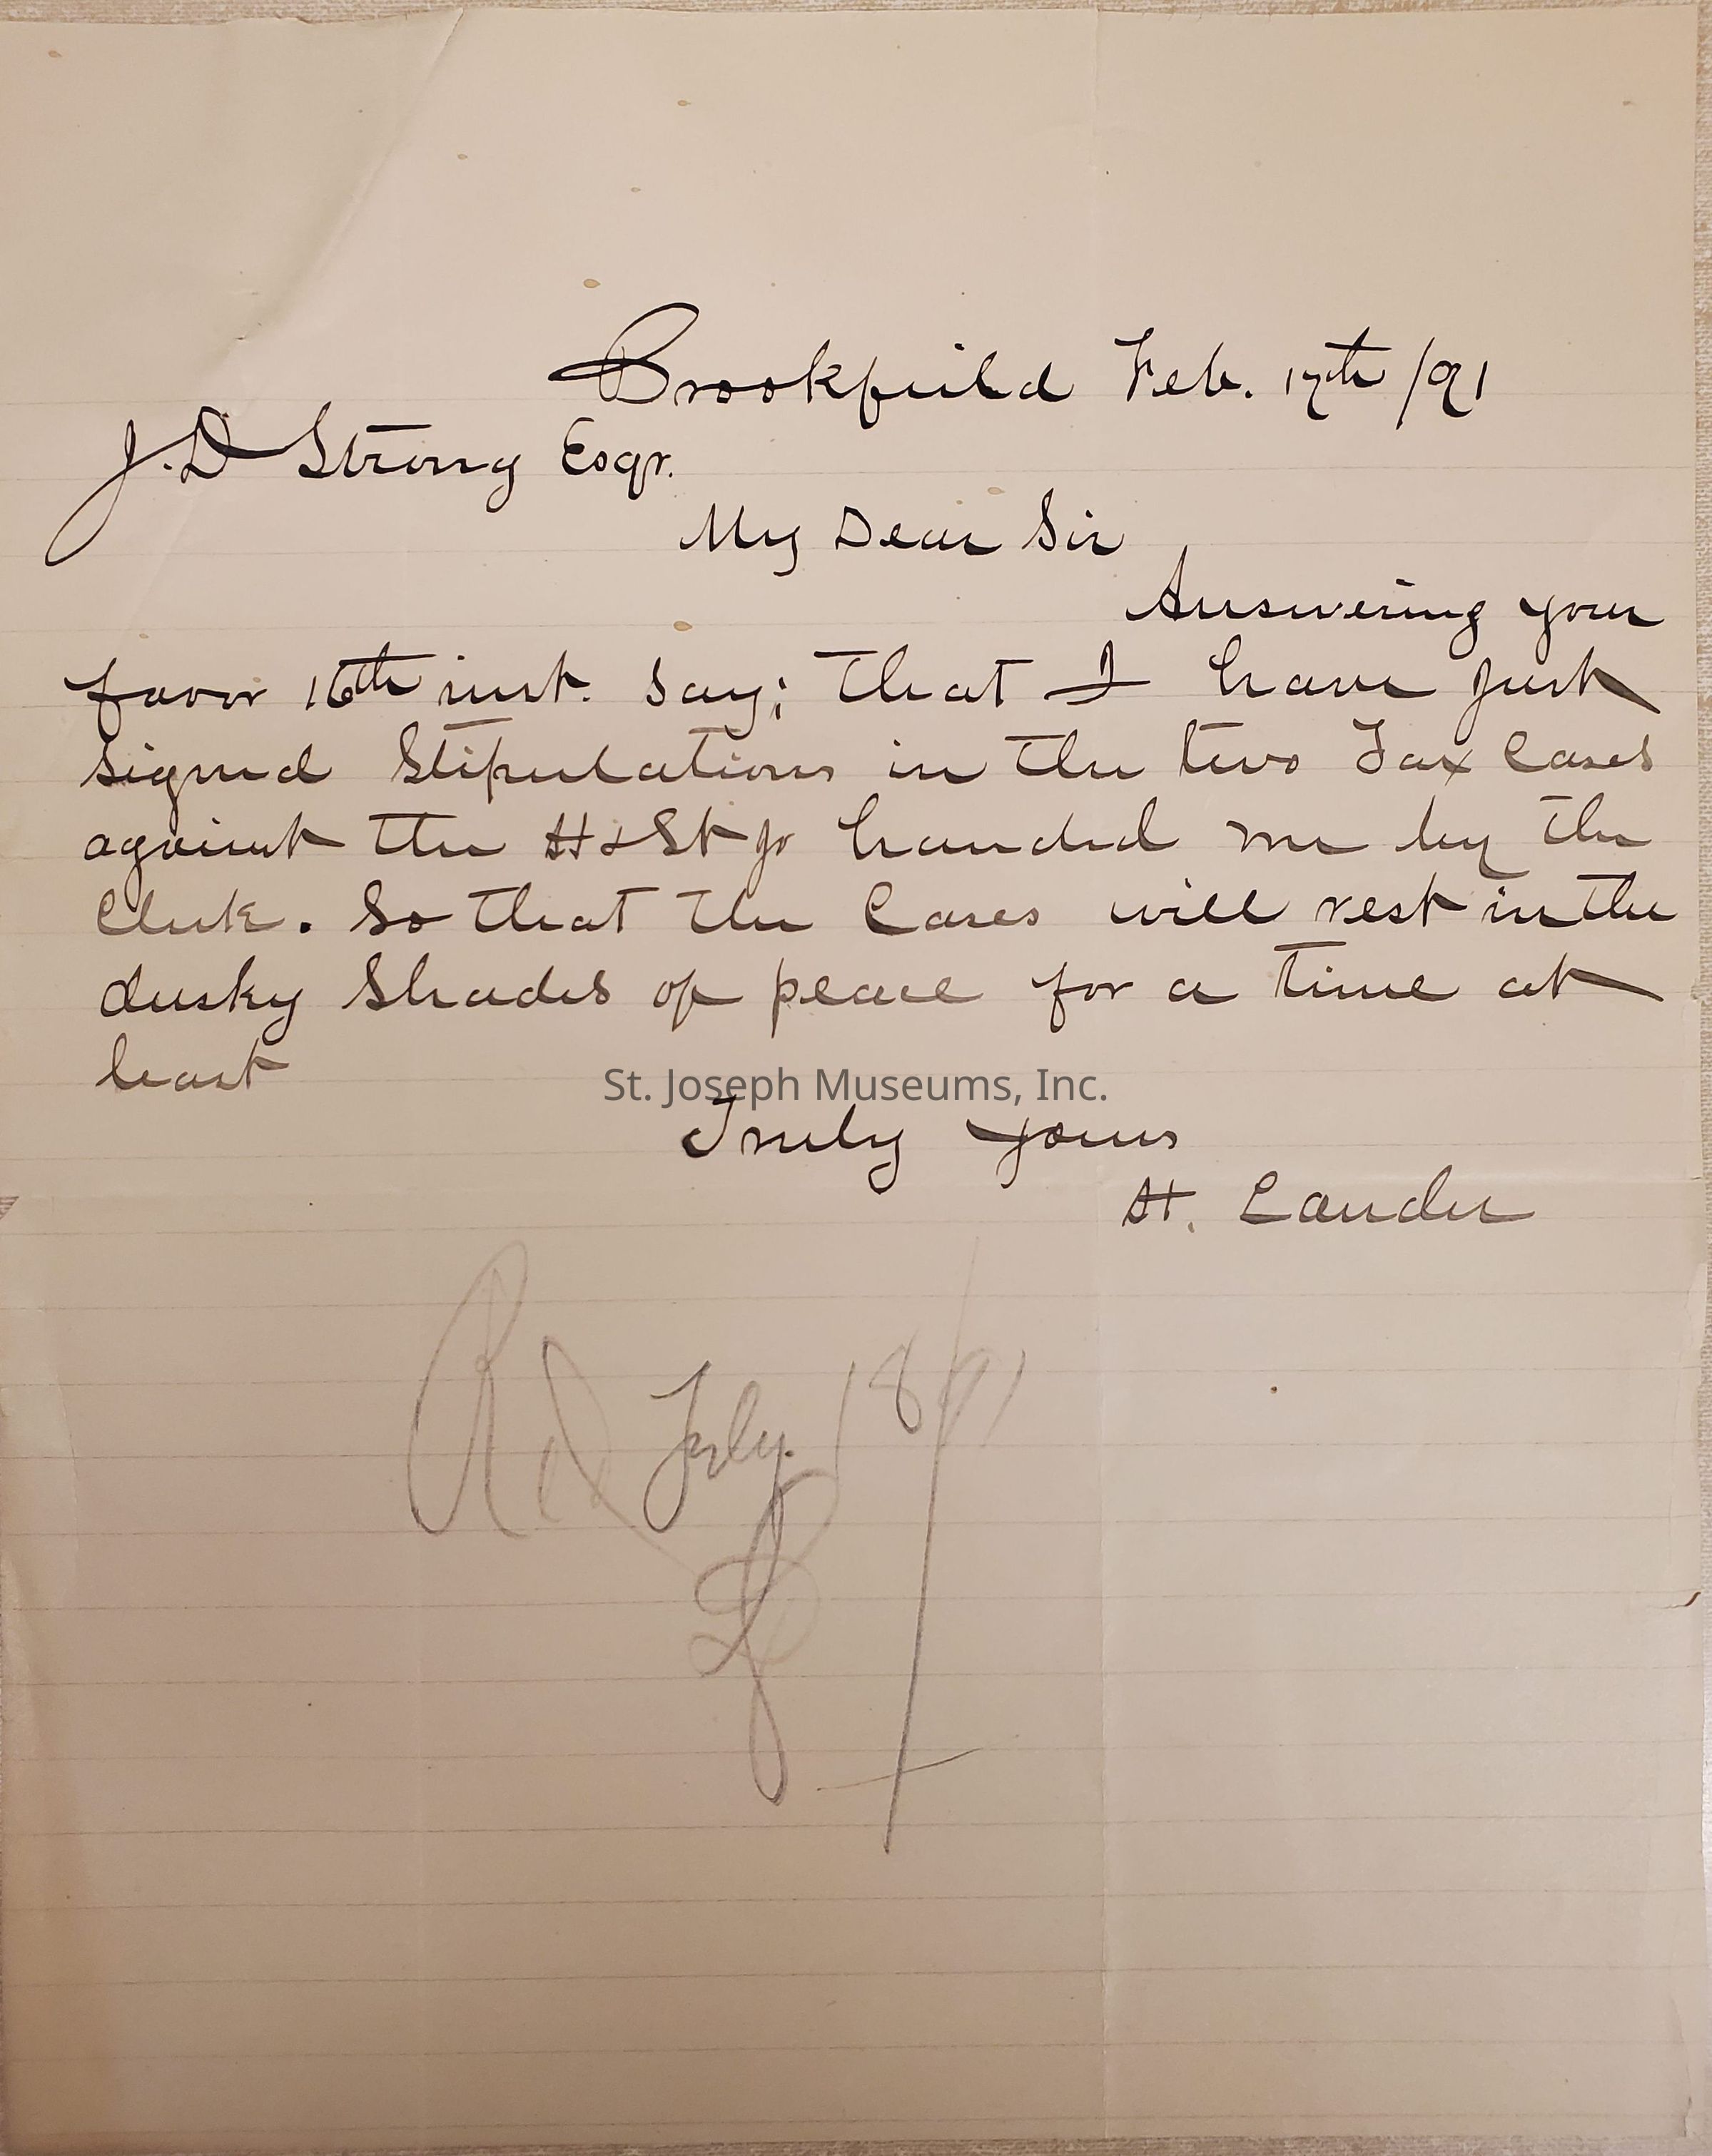 Brookfield Feb. 17th /91
J. D Strong Esqr.
My Dear Sir
Answering your
favor 16th inst. Say; that I have just
signed Stipulations in the two Tax Cases
against the H & St Jo handed me by the
Clerk. So that the Cases will rest in the
dusky Shades of peace for a time at
least
St. Joseph Museums, Inc.
Truly yours
H. Lander
July. 1891